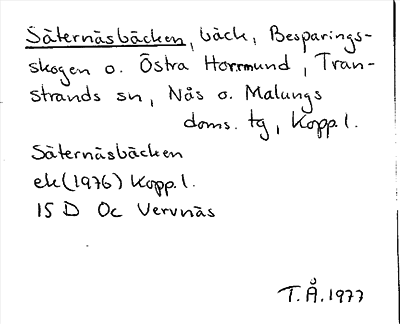 Säternäsbäcken, bäck, Besparings-
skogen o. Östra Horrmund, Tran-
strands sn, Nås o. Malungs
doms. tg, Kopp. l.
Säternäsbäcken
ek (1976) Kopp. l.
15 D Oc Vervnäs
T. Å. 1977